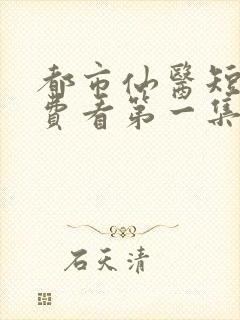 都市仙醫短
費看第一集
石天清